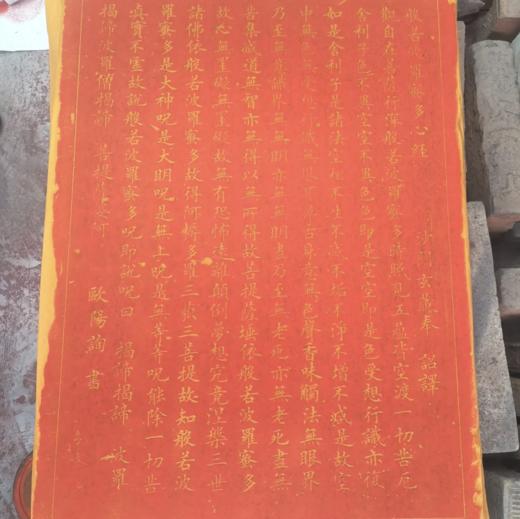 般若波羅蜜多心經
沙門玄奘奉 詔譯
觀自在菩薩行深般若波羅蜜多時照見五蘊皆空渡一切苦厄
舍利子色不異空空不異色色即是空空即是色受想行識亦復
如是舍利子是諸法空相不生不滅不垢不淨不增不減是故空
中無色無受想行識無眼耳鼻舌身意無色聲香味觸法無眼界
乃至無意識界無無明亦無無明盡乃至無老死亦無老死盡無
苦集滅道無智亦無得以無所得故菩提薩埵依般若波羅蜜多
故心無罣礙無罣礙故無有恐怖遠離顛倒夢想究竟涅槃三世
諸佛依般若波羅蜜多故得阿耨多羅三藐三菩提故知般若波
羅蜜多是大神呪是大明呪是無上呪是無等等呪能除一切苦
真實不虛故說般若波羅蜜多呪即說呪曰 揭諦揭諦 波羅
揭諦 波羅僧揭諦 菩提薩婆訶
歐陽詢 書